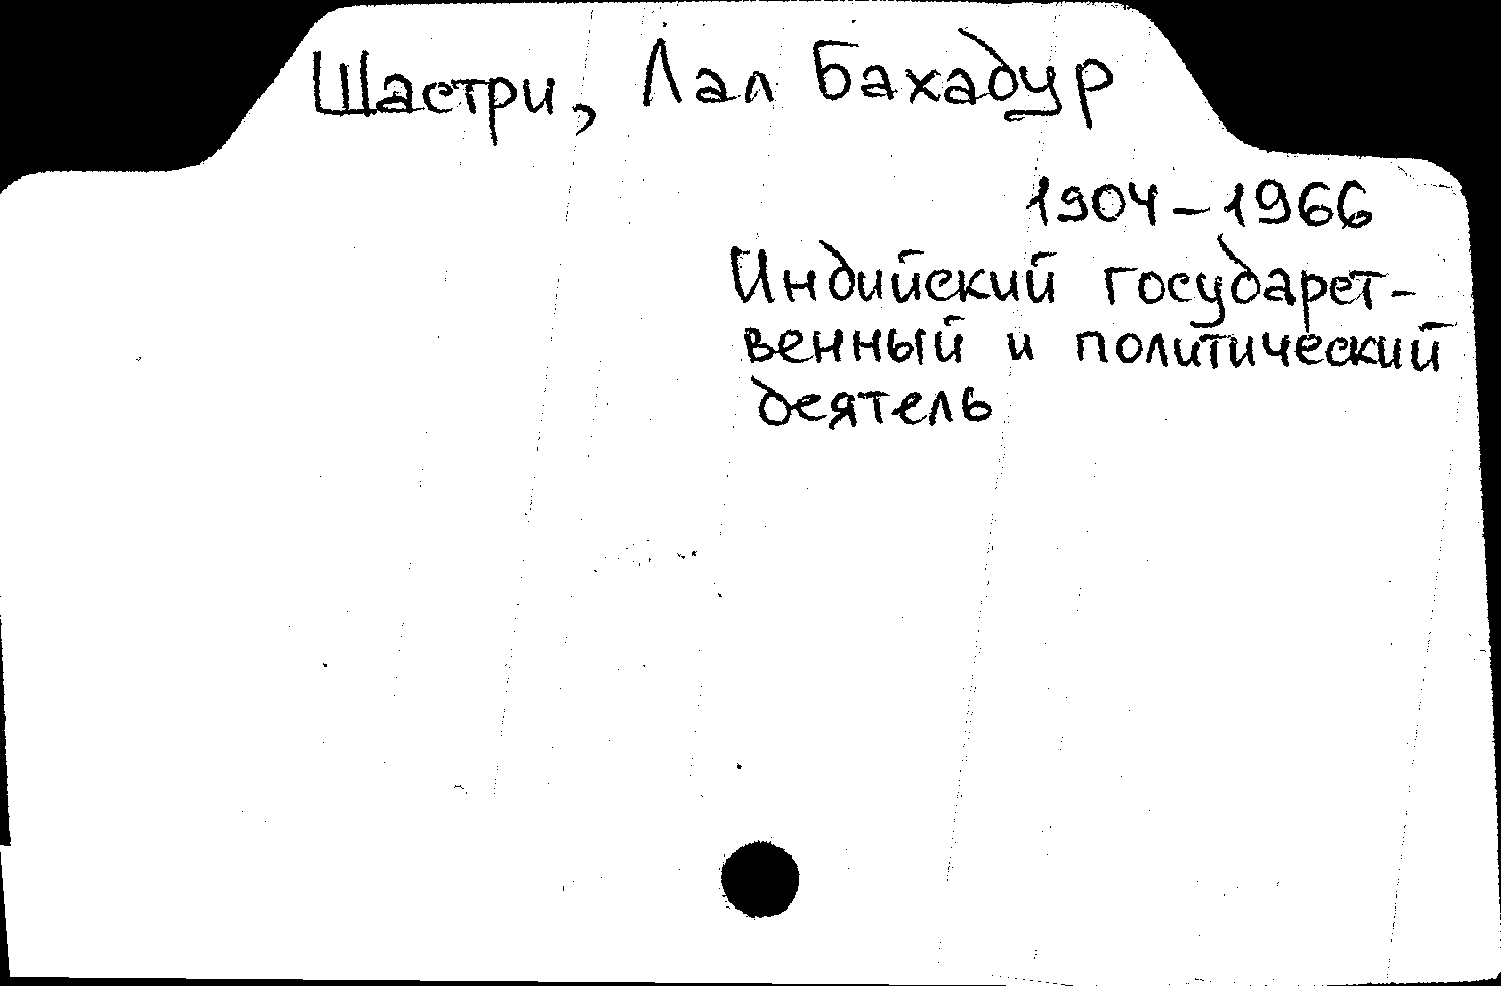 Шастри, Лал Бахадур
1904-1966
Индийский государст-
венный и политический
деятель